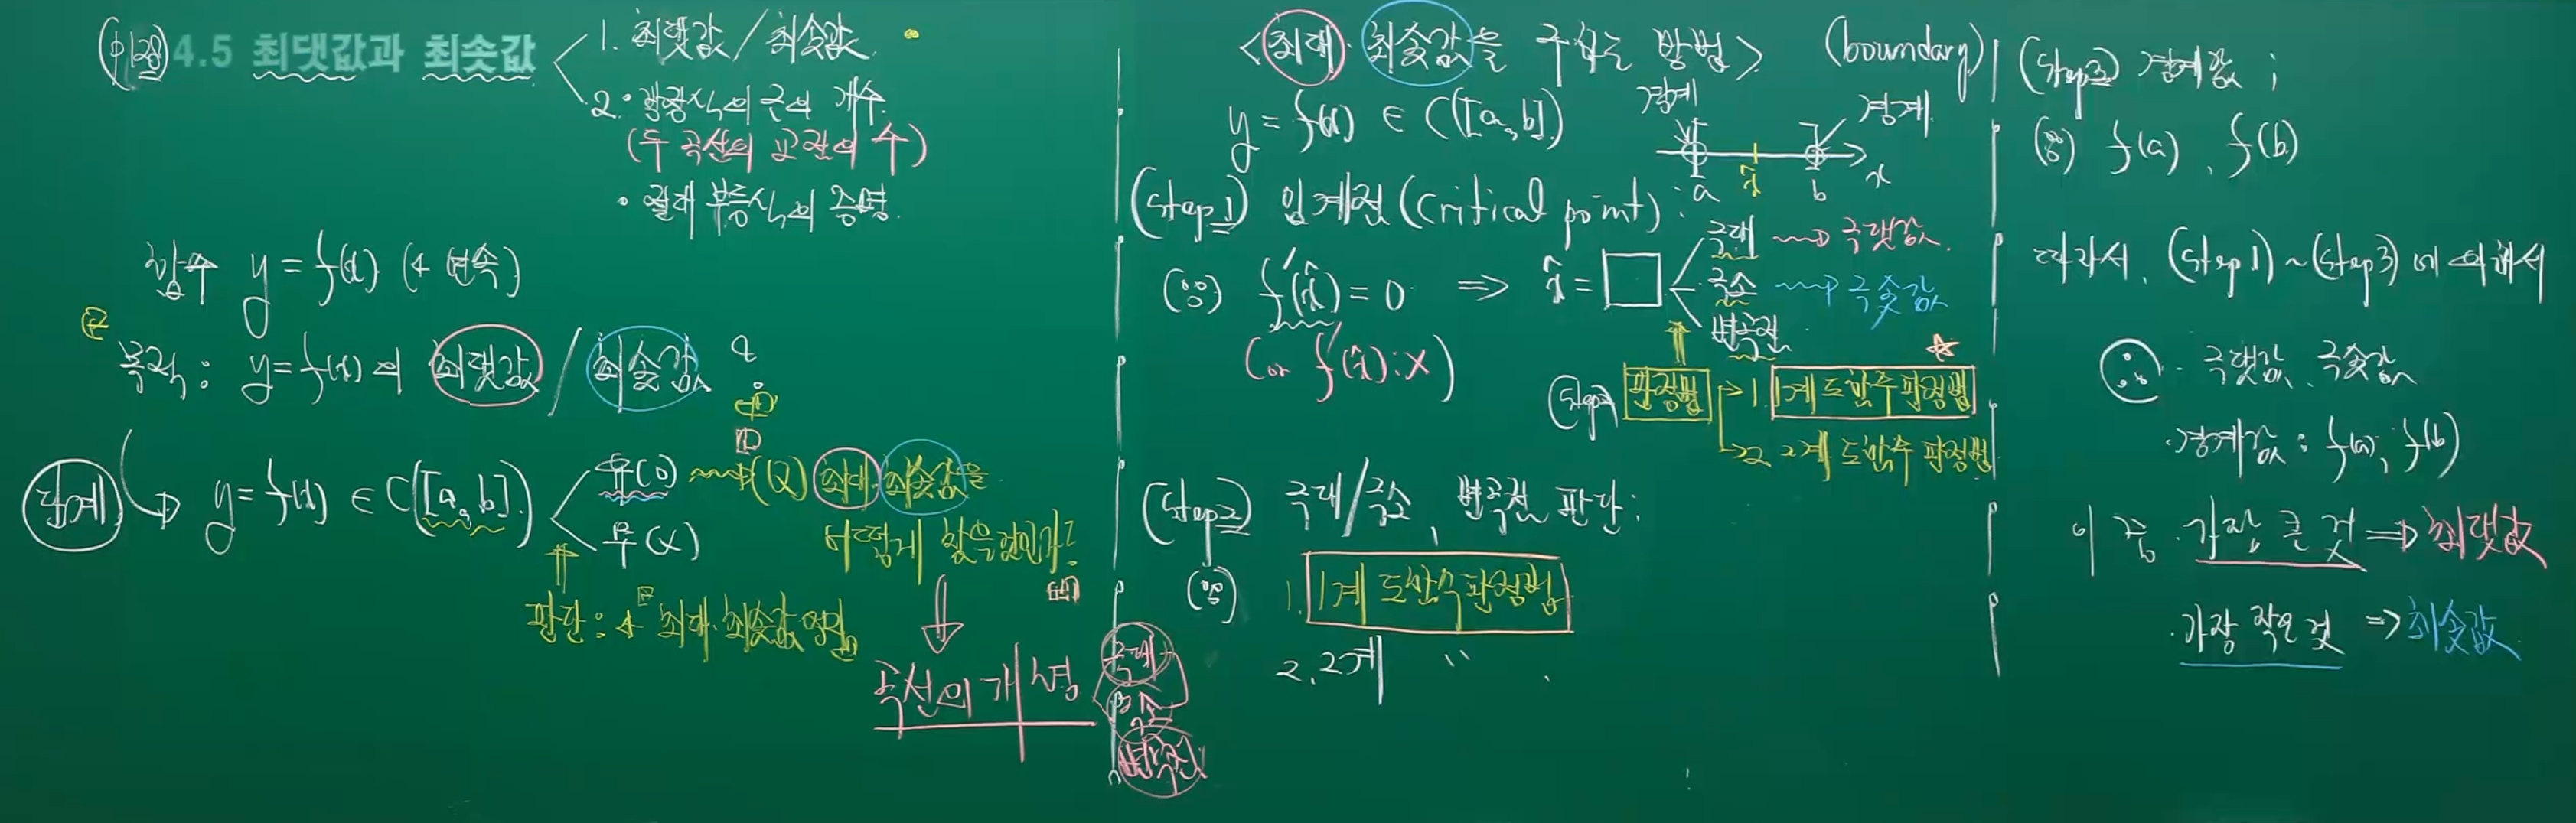 4.5 최댓값과 최솟값
1. 최댓값 / 최솟값
2. · 방정식의 근의 개수
(두 곡선의 교점의 수)
· 절대 부등식의 증명.
함수 y = f(x) (연속)
목적: y = f(x)의 최댓값 / 최솟값
단계 y = f(x) ∈ C([a, b])
유(O) (Q) 최대·최솟값을
어떻게 찾을것인가?
무(X)
판단: 최대·최솟값 정리
곡선의 개형
극대
극소
변곡점
<최대·최솟값을 구하는 방법> (boundary)
y = f(x) ∈ C([a, b])
경계 경계
a x̂ b x
(Step 1) 임계점 (critical point):
f'(x̂) = 0 ⇒ x̂ = □
(or f'(x̂): X)
극대 극댓값.
극소 극솟값
변곡점
(Step2) 판정법 1. 1계 도함수 판정법
2. 2계 도함수 판정법
(Step2) 극대/극소, 변곡점 판단:
1. 1계 도함수 판정법
2. 2계 〃
(Step3) 경계값;
f(a), f(b)
따라서, (Step1) ~ (Step3)에 의해서
· 극댓값, 극솟값
· 경계값: f(a), f(b)
이 중 · 가장 큰 것 ⇒ 최댓값
· 가장 작은 것 ⇒ 최솟값